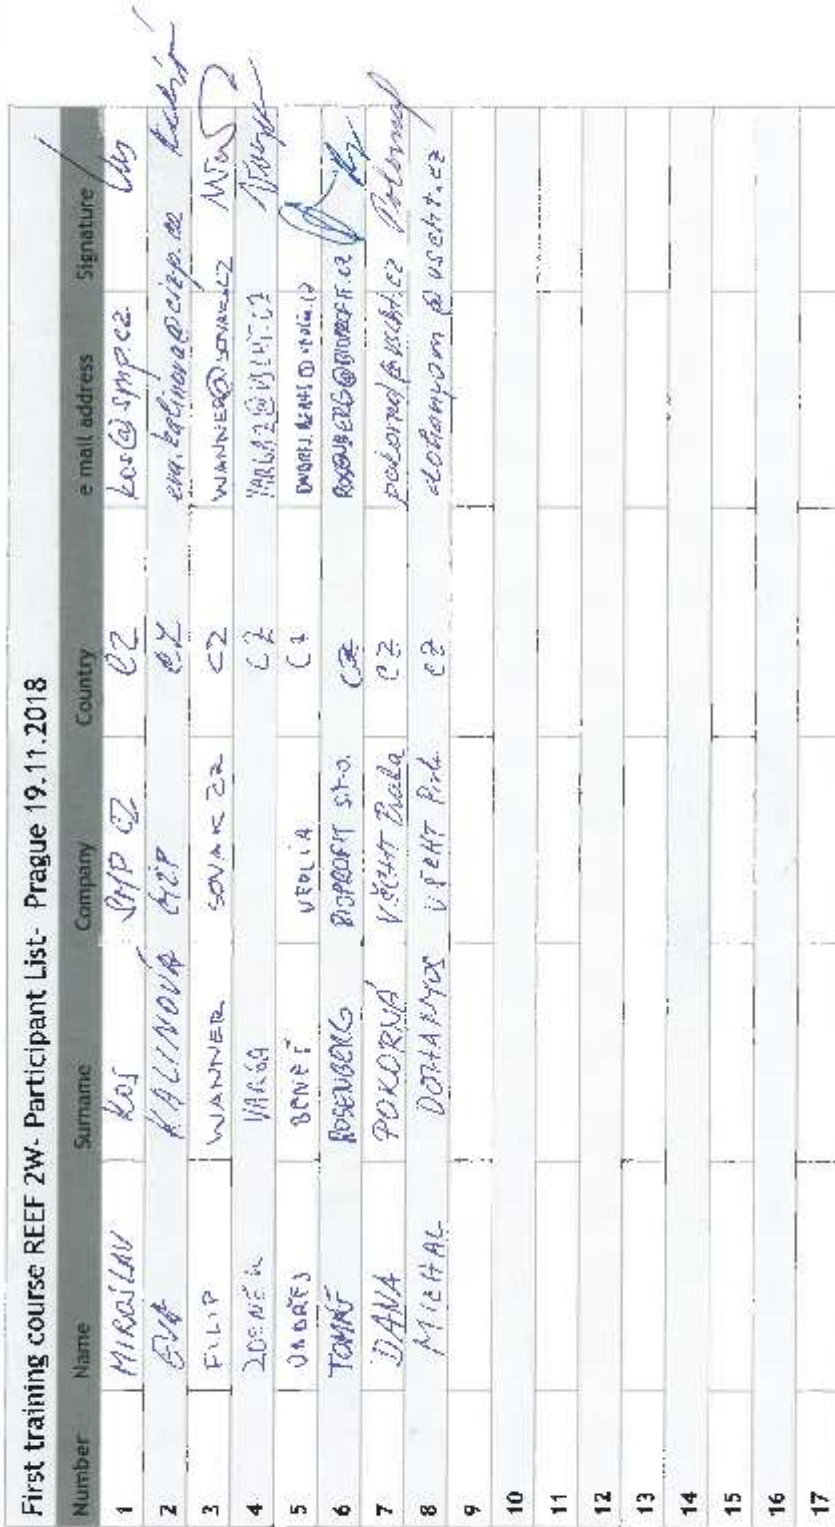 First training course REEF 2W- Participant List- Prague 19.11.2018
Number Name Surname Company Country e mail address Signature
1 MIROSLAV KOS SMP CZ CZ kos@smp.cz
2 EVA KALINOVÁ ČIŽP CZ eva.kalinova@cizp.cz
3 FILIP WANNER SOVAK ČR CZ WANNER@SOVAK.CZ
4 ZDENĚK VARGA CZ VARGAZ@VSCHT.CZ
5 ONDŘEJ BENEŠ VEOLIA CZ
6 TOMÁŠ ROSENBERG BIOPROFIT s.r.o. CZ ROSENBERG@BIOPROFIT.cz
7 DANA POKORNÁ VŠCHT Praha CZ pokornd@vscht.cz
8 MICHAL DOHÁNYOS VŠCHT CZ dohanyom@vscht.cz
9
10
11
12
13
14
15
16
17